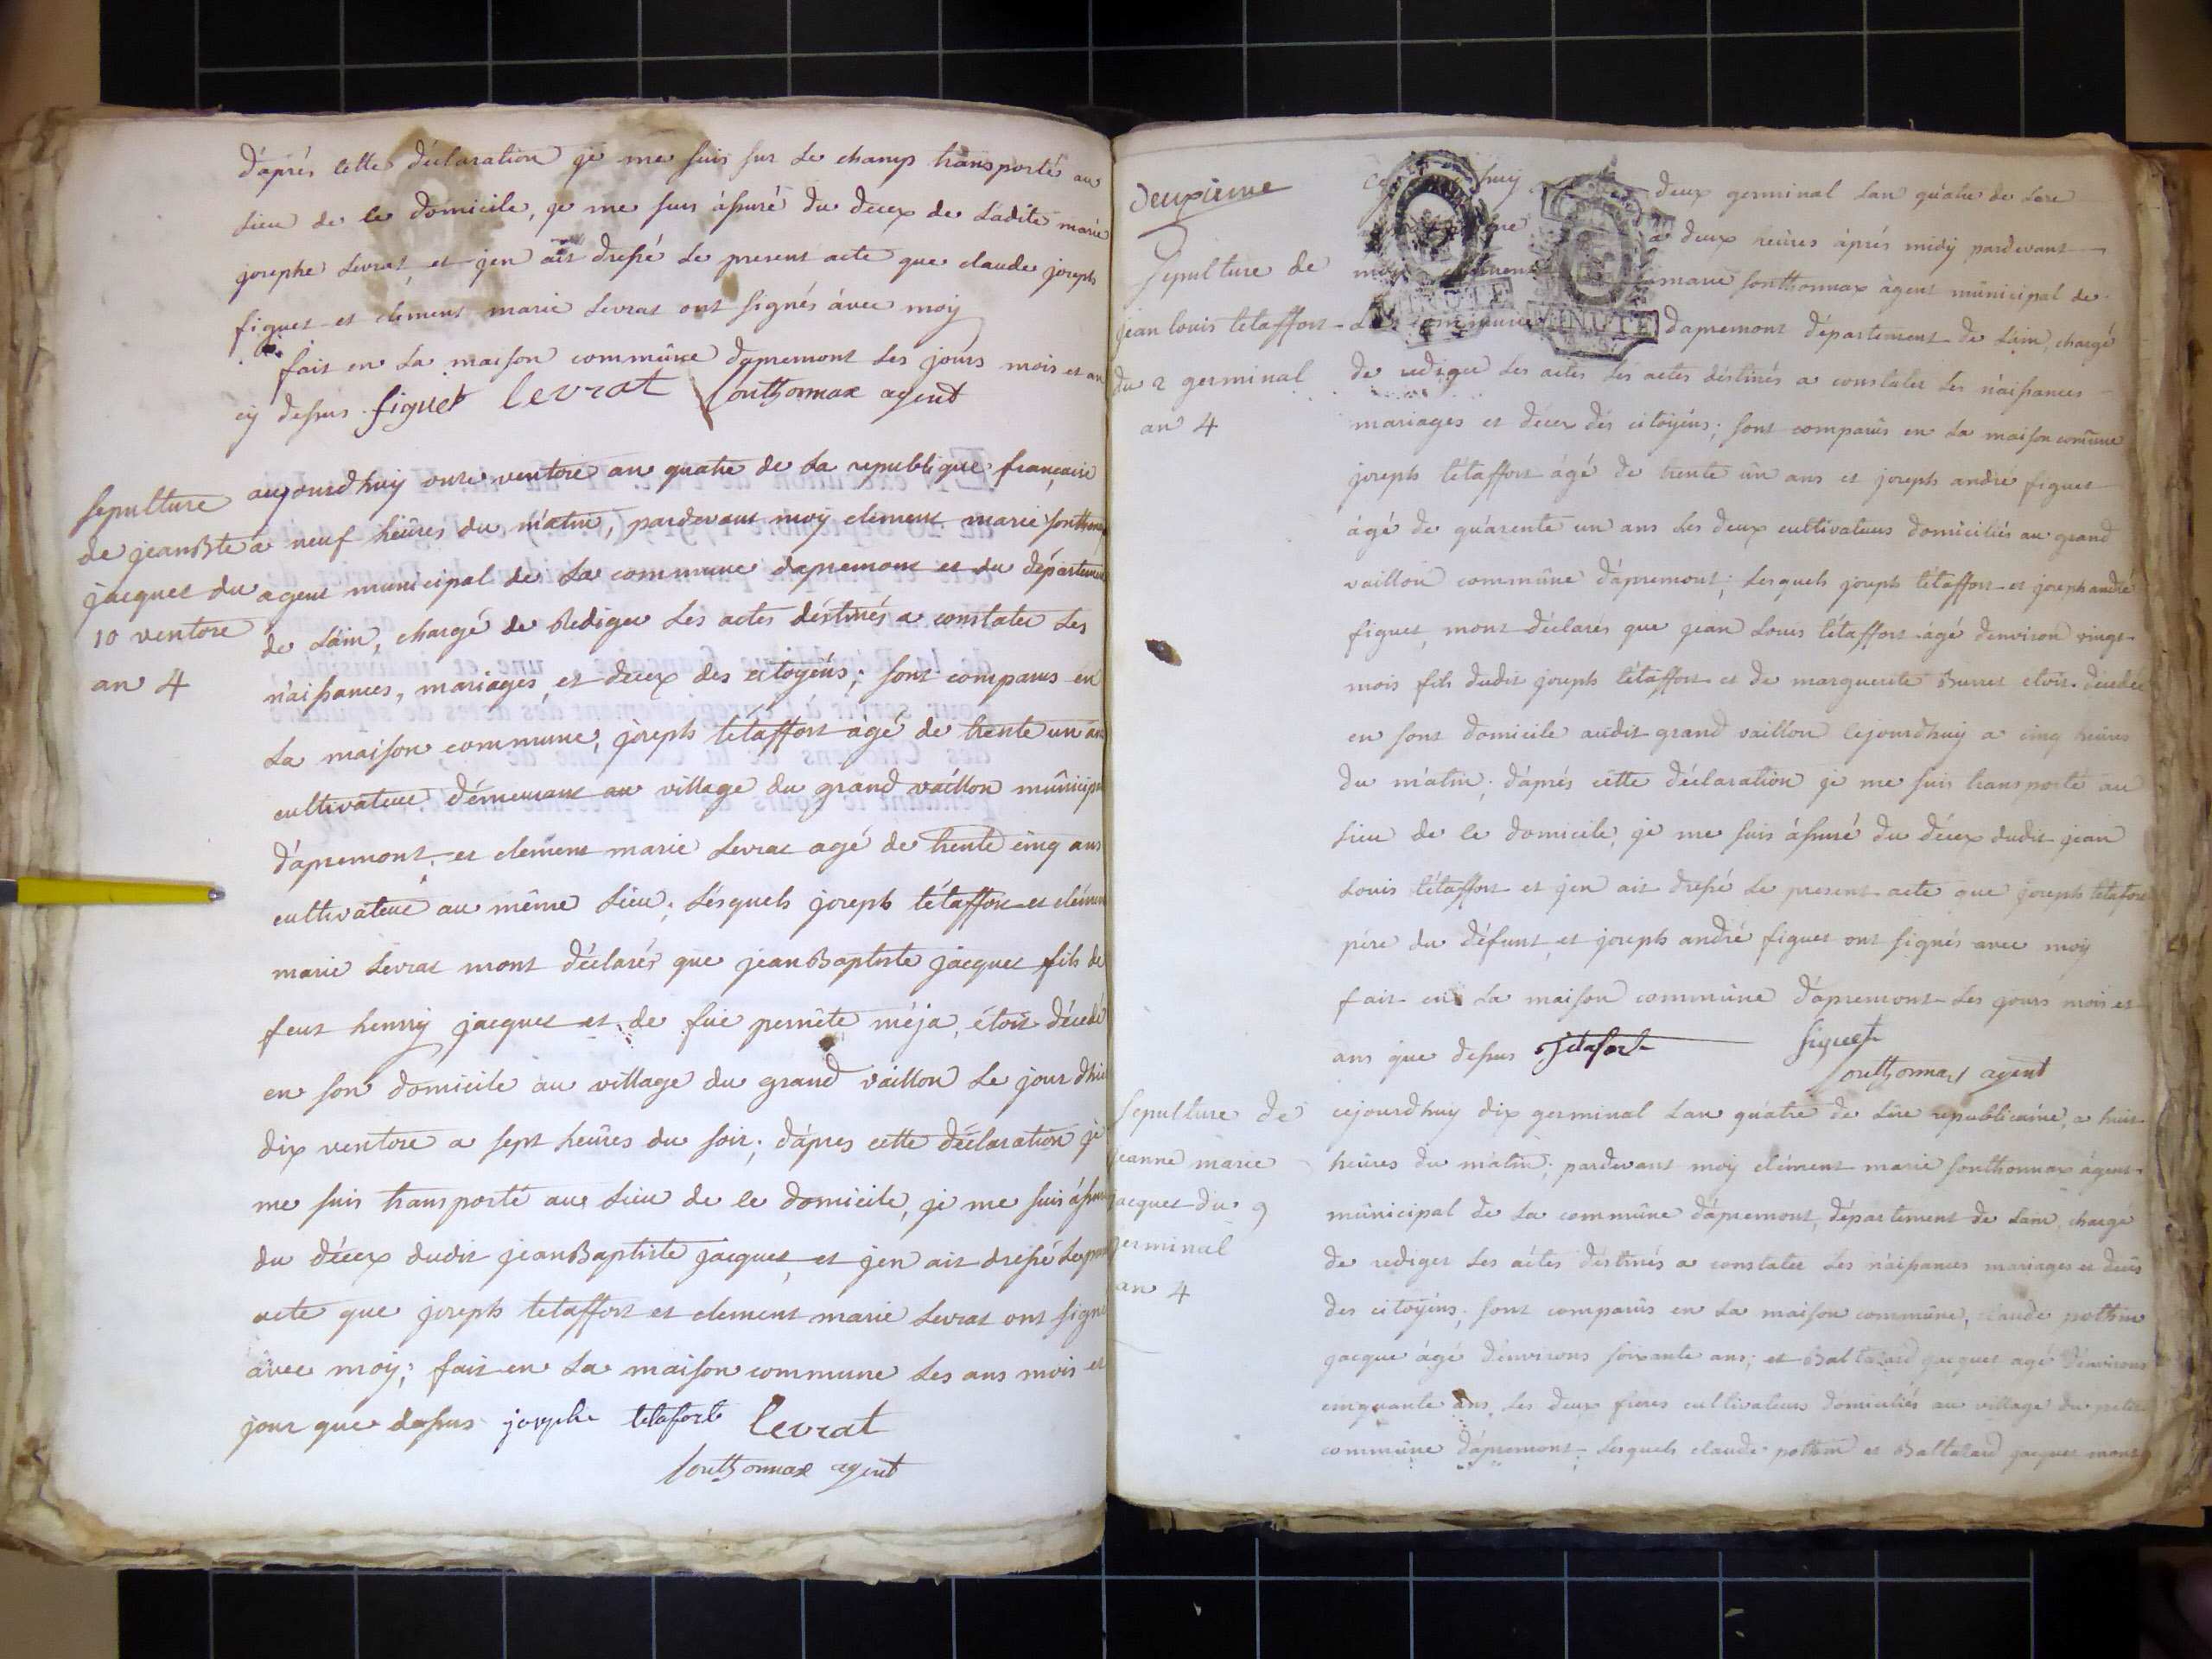 d'après cette déclaration je me suis sur le champ transporté au
lieu de ce domicile, je me suis àssuré du deces de ladite marie
josephe levrat, et jen ait dressé le present acte que claude joseph
figuet et clement marie levrat ont signés àvec moy
fait en la maison commûne dapremont les jours mois et an
cy dessus figuet levrat Sonthonnax agent
sepulture
de jean Bte
jacquet du
10 ventose
an 4
aujourdhuy onze ventose an quatre de la republique francaise
à neuf heûres du màtin, pardevant moy clement marie sonthonnax
agent municipal de la commune dapremont et du départemen
de Làin, chargé de Rediger les actes déstinés a constater les
nàissances, mariages, et deces des citoyéns; sont comparus en
La maison commune, joseph tétaffort àgé de trente un ans
cultivateur démeurant au village du grand vaillon mûnicip
d'àpremont, et clement marie levrat agé de trente cinq ans
cultivateur au même lieu; lésquels joseph tétaffort et clémen
marie levrat mont déclarés que jean Baptiste jacquet fils de
feut henry jacquet et de fue pernéte méja, étoit décedé
en son domicile au village du grand vaillon le jour dhie
dix ventose a sept heûres du soir; dàpres cette déclaration je
me suis transporté au lieu de ce domicile, je me suis àssu
du déces dudit jean Baptiste jacquet, et jen ait dressé le pre
acte que joseph tetaffort et clement marie levrat ont signe
àvec moy; fait en la maison commune les ans mois et
jour que dessus josephe tetafort levrat
Sonthonnax agent
Deuxieme
Sepulture de
jean louis tetaffort
du 2 germinal
an 4
huy deux germinal lan quàtre de lere
à deux heûres àprés midy pardevant
moy clement marie sonthonnax àgent mûnicipal de
La commune MINUTE MINUTE dapremont département de Lain, chargé
de rediger les actes les actes déstinés a constater les nàissances
mariages et déces dés citoyéns; sont comparûs en la maison comûne
joseph tétaffort àgé de trente ûn ans et joseph andré figuet
àgé de quàrente un ans les deux cultivateurs domiciliés au grand
vaillon commûne dàpremont; lesquels joseph tétaffort et joseph andré
figuet, mont déclarés que jean Louis tétaffort àgé denviron vingt
mois fils dudit joseph tétaffort et de marguerite Burnet etoit décedée
en sont domicile audit grand vaillon cejourdhuy a cinq heûres
du màtin; dàprés cétte déclaration je me suis transporté au
lieu de ce domicile, je me suis àssuré du déces dudit jean
Louis tétaffort et jen ait dressé le present acte que joseph tétafort
pére du défunt, et joseph andré figuet ont signés avec moy
fait en la maison commûne dàpremont les jours mois et
ans que dessus J tetafort figuet
Sonthonnax agent
Sepulture de
jeanne marie
jacquet du 9
germinal
an 4
cejourdhuy dix germinal lan quàtre de lére republicaine, a huit
heûres du màtin; pardevant moy clément marie sonthonnax àgent
mûnicipal de la commûne dàpremont, département de Lain, chargé
de rediger les àctes déstinés a constater les nàissances mariages et deces
des citoyéns; sont comparûs en la maison commûne, claude pothin
jacque àgé dénvirons soixante ans; et Baltazard jacquet agé dénvirons
cinquante ans, les deux freres cultivateurs domiciliés au village du petit
commûne dàpremont; lesquels claude pothin et Baltazard jacquet mont